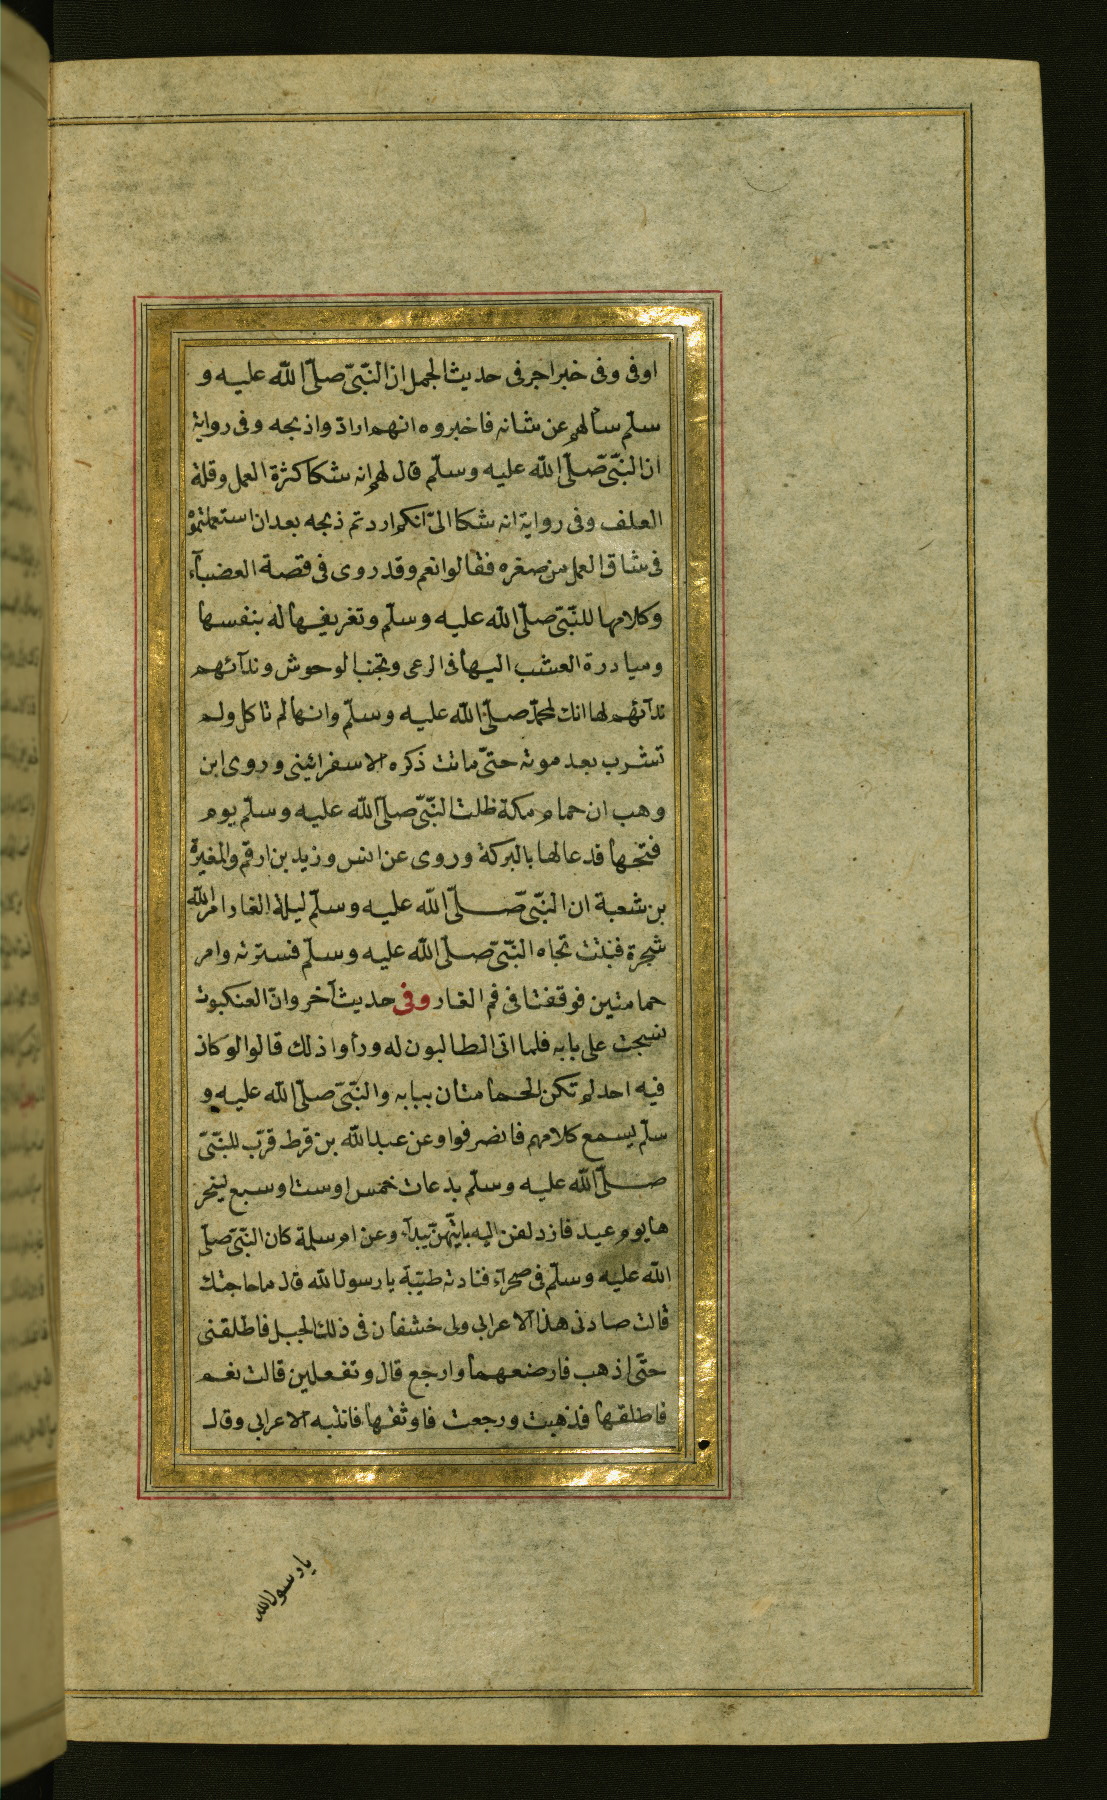 اوفى وفى خبراخرفى حديث الجمل ان النّبىّ صلّى الله عليه و
سلّم سألهم عن شانه فاخبروه انهم اراد واذبحه وفى رواية
ان النّبىّ صلّى الله عليه وسلّم قال لهم انه شكا كثرة العمل وقلة
العلف وفى رواية انه شكا الىّ انكم اردتم ذبحه بعد ان استعملتموه
فى شاق العمل من صغره فقالوا نعم وقد روى فى قصة العضبآء
وكلامها للنّبىّ صلّى الله عليه وسلّم وتعريفها له بنفسها
ومبادرة العشب اليها فى الرعى وتجنب الوحوش وندآئهم
ندآئهم لها انك لمحمّد صلّى الله عليه وسلّم وانها لم تاكل ولم
تشرب بعد موته حتىّ ماتت ذكره الاسفرائينى وروى ابن
وهب ان حمام مكة ظلت النّبىّ صلّى الله عليه وسلّم يوم
فتحها فدعا لها بالبركة وروى عن انس وزيد بن ارقم والمغيرة
بن شعبة ان النّبىّ صلّى الله عليه وسلّم ليلة الغار امر الله
شجرة فنبتت تجاه النّبىّ صلّى الله عليه وسلّم فسترته وامر
حمامتين فوقفتا فى فم الغار وفى حديث آخر وانّ العنكبوت
نسجت على بابه فلما اتى الطالبون له ورأوا ذلك قالوا لو كان
فيه احد لم تكن الحمامتان ببابه والنّبىّ صلّى الله عليه و
سلّم يسمع كلامهم فانصرفوا وعن عبدالله بن قرط قرّب للنّبىّ
صلّى الله عليه وسلّم بدعات خمس اوست اوسبع لينحر
ها يوم عيد فازدلفن اليه بايّهنّ يبدآء وعن ام سلمة كان النّبىّ صلّى
الله عليه وسلّم فى صحرآء فنادته ظبيّة يا رسول الله قال ما حاجتك
قالت صادنى هذا الاعرابى ولى خشفان فى ذلك الجبل فاطلقنى
حتّى اذهب فارضعهما وارجع قال وتفعلين قالت نعم
فاطلقها فذهبت ورجعت فاوثقها فانتبه الاعرابى وقال
يا رسول الله